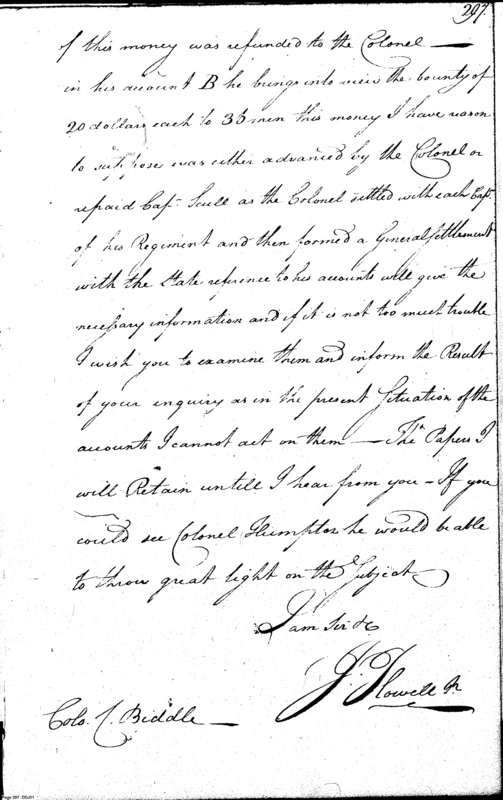 297.
of this money was refunded to the Colonel —
in his account B he brings into view the bounty of
20 dollars each to 36 men this money I have reason
to suppose was either advanced by the Colonel or
repaid Capt. Scull as the Colonel settled with each Capt.
of his Regiment and then formed a General Settlement
with the State reference to his accounts will give the
necessary information and if it is not too much trouble
I wish you to examine them and inform the Result
of your enquiry as in the present Situation of the
accounts I cannot act on them — The Papers I
will Retain untill I hear from you – If you
could see Colonel Humpton he would be able
to throw great light on the Subject
I am Sir &c
J. Howell Jr.
Colo. C. Biddle —
Page 297 DDJ01